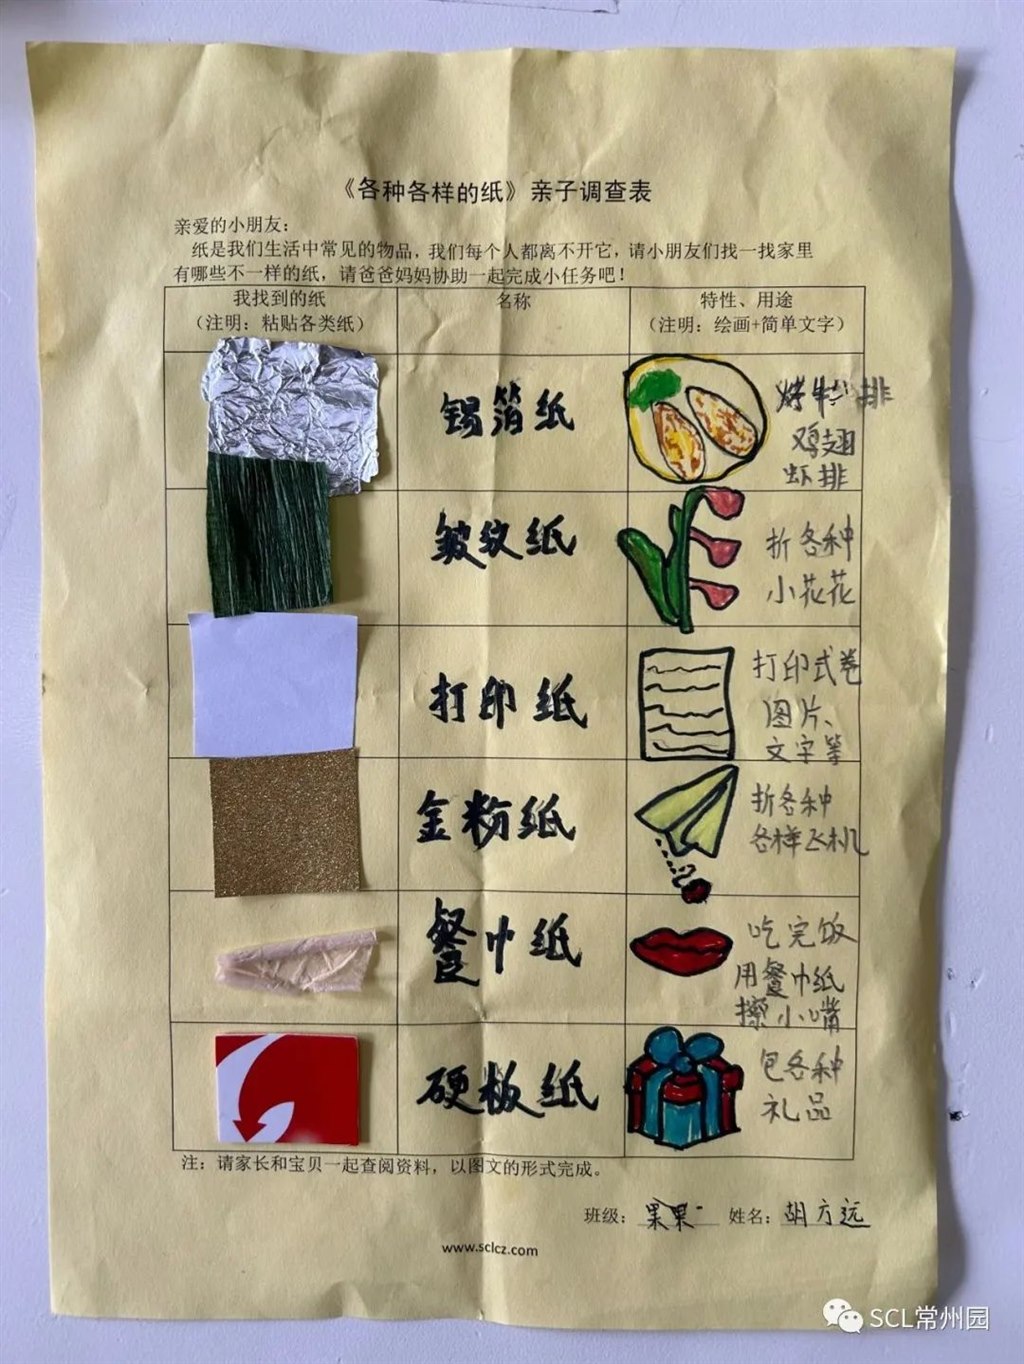 《各种各样的纸》亲子调查表
亲爱的小朋友：
纸是我们生活中常见的物品，我们每个人都离不开它，请小朋友们找一找家里
有哪些不一样的纸，请爸爸妈妈协助一起完成小任务吧！
我找到的纸
（注明：粘贴各类纸）
名称
特性、用途
（注明：绘画+简单文字）
锡箔纸
烤牛排
鸡翅
虾排
皱纹纸
折各种
小花花
打印纸
打印式卷
图片、
文字等
金粉纸
折各种
各样飞机
餐巾纸
吃完饭
用餐巾纸
擦小嘴
硬板纸
包各种
礼品
注：请家长和宝贝一起查阅资料，以图文的形式完成。
班级：果果一 姓名：胡方远
www.sclcz.com
SCL常州园